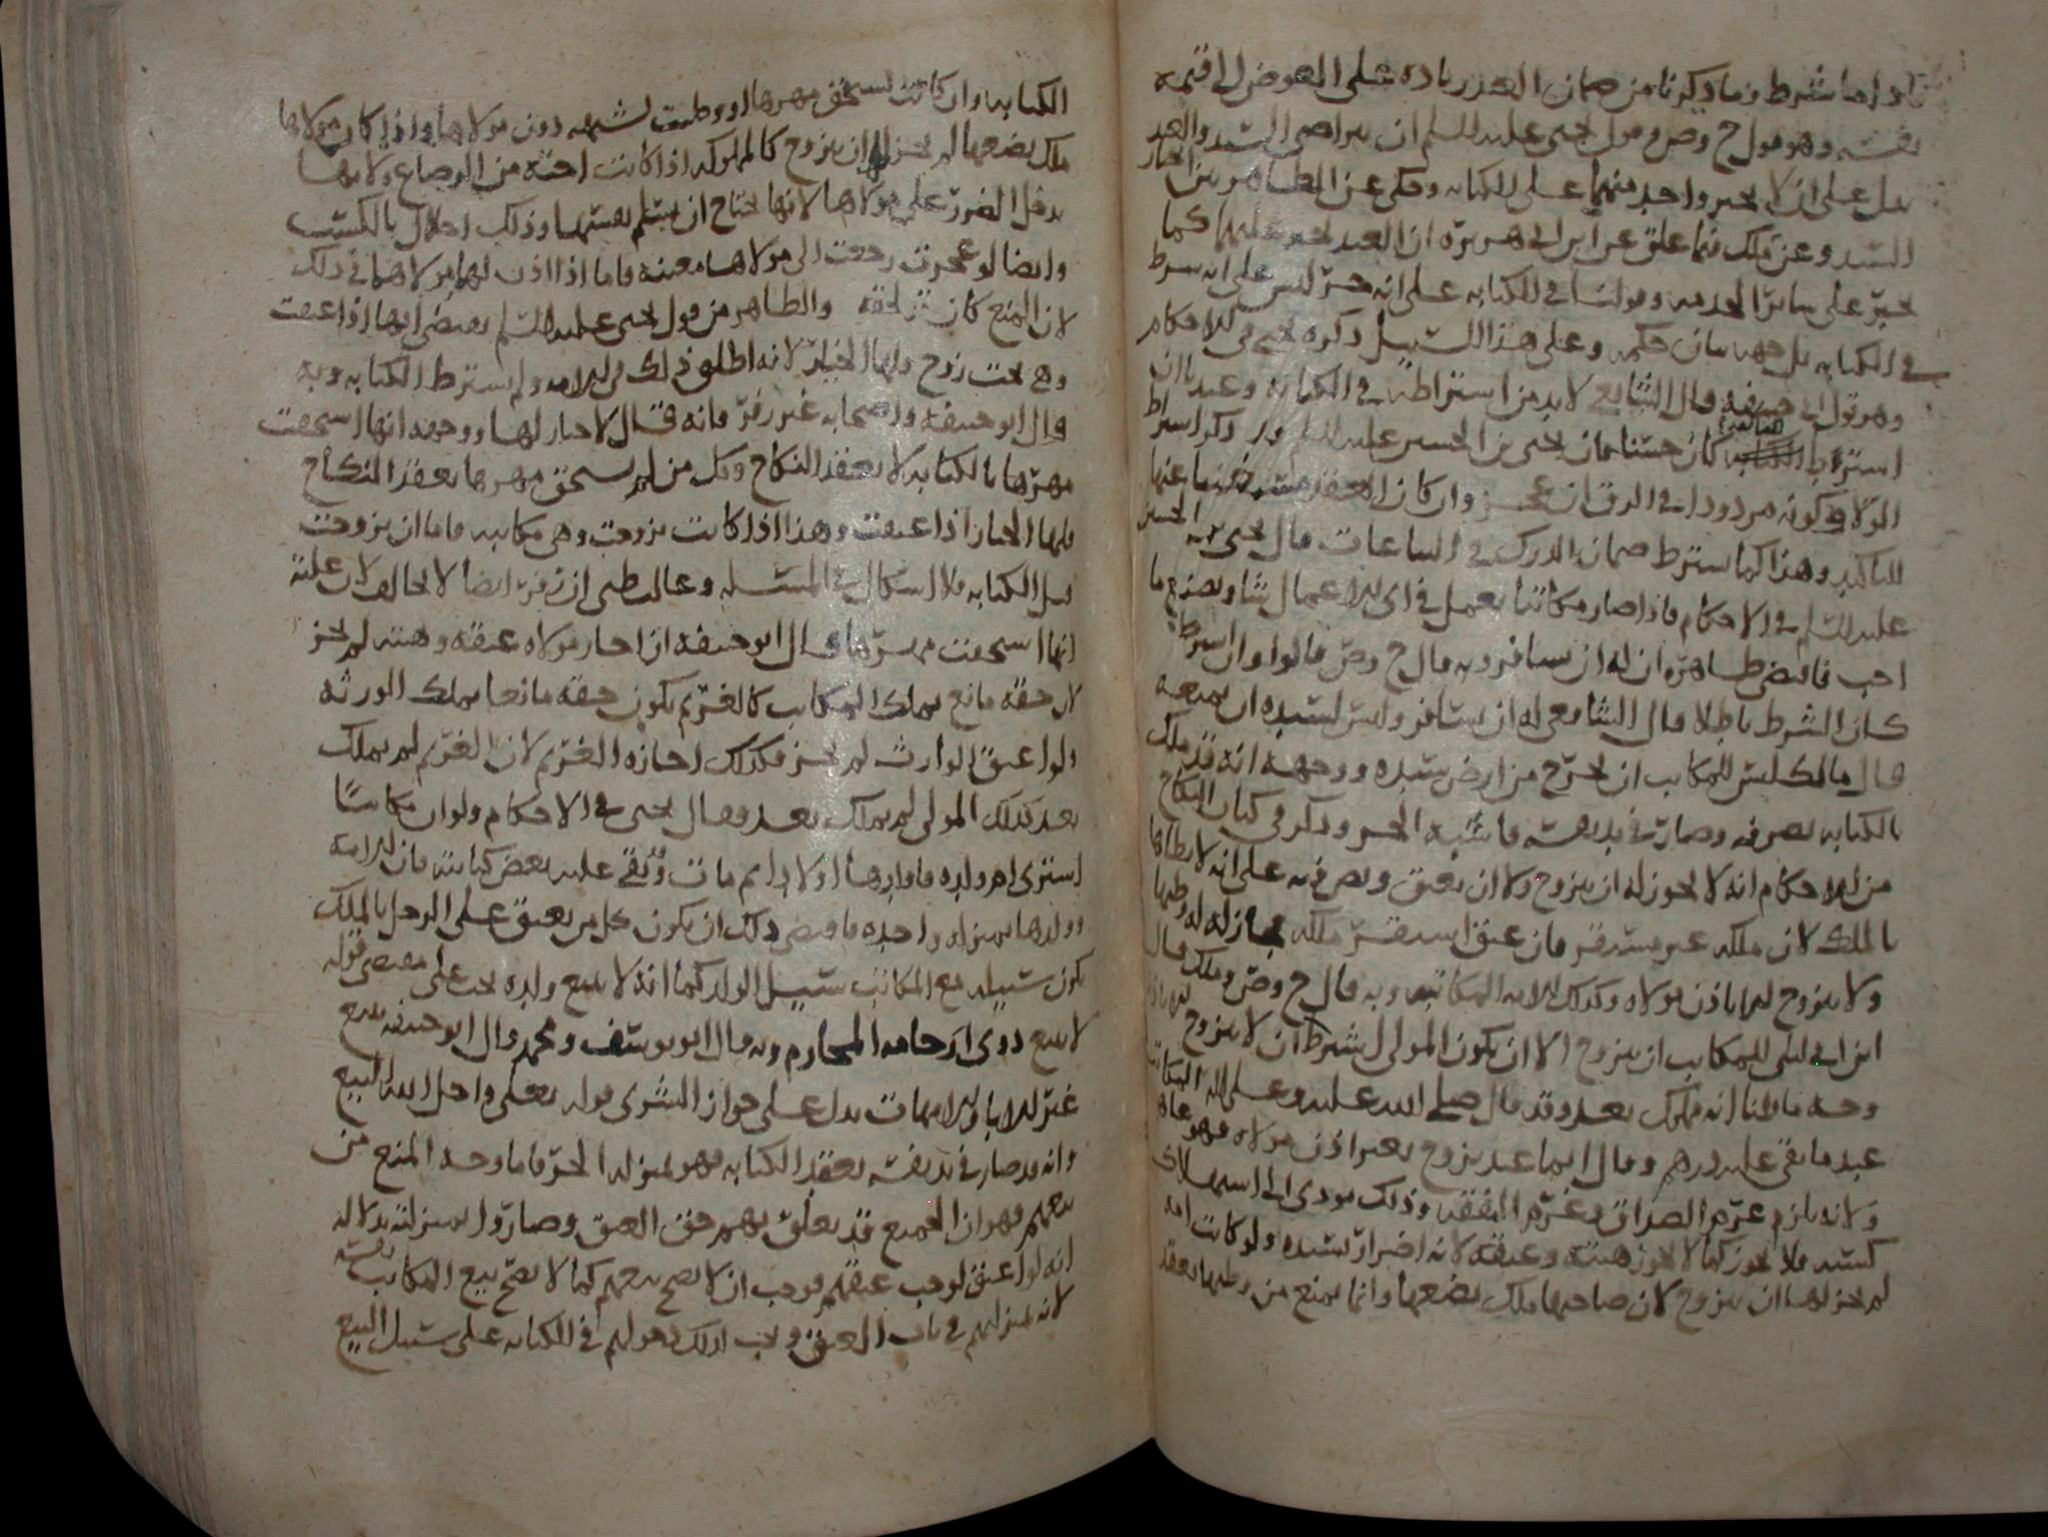 شرط وما ذكرنا من ضمان العبد زياده على العوض الى قيمه
نفسه وهو قول ح وص وقول يحيى عليه السلم ان يتراضى السيد والعبد
يدل على ان لا يجبر واحد منهما على الكتابه وحكى عن
السيد وعن ملك فيما علق عن ابن ابي هريره ان العبد يجبر عليها كما
يجبر على سائر الخدمه وقولنا في الكتابه على انه حر ليس على انه شرط
في الكتابه بل جهه بيان حكمه وعلى هذا السبيل ذكره يحيى في الاحكام
وهو قول ابي حنيفه قال الشافعي لا بد من اشتراطه في الكتابه وعندنا ان
كان حسنا فان يحيى بن الحسين عليه السلم ذكر اشتراط
الولا وكونه مردودا في الرق ان عجز وان كان العقد عنها
للتاكيد وهذا كما يشترط ضمان الدرك في البياعات قال يحيى بن الحسين
عليه السلم في الاحكام فاذا صار مكاتبا يعمل في اي الاعمال شا ويصنع ما
احب فاقتضى ظاهره ان له ان يسافر وبه قال ح وص قالوا وان اشترط
كان الشرط باطلا قال الشافعي له ان يسافر وليس لسيده ان يمنعه
قال مالك ليس للمكاتب ان يخرج من ارض سيده ووجهه انه قد ملك
بالكتابه تصرفه وصار في يد نفسه فاشبه الحر وذكر في كتاب النكاح
من الاحكام انه لا يجوز له ان يتزوج ولا ان يعتق ونص فيه على انه لا يطاها
بالملك لان ملكه غير مستقر فان عتق استقر ملكه فجاز له وطيها
ولا يتزوج الا باذن مولاه وكذلك الامه المكاتبه وبه قال ح وص وملك قال
ابن ابي ليلى للمكاتب ان يتزوج الا ان يكون المولى شرط ان لا يتزوج
وجه ما قلنا انه مملوك بعد وقد قال صلى الله عليه وعلى اله المكاتب
عبد ما بقي عليه درهم وقال ايما عبد تزوج بغير اذن مولاه فهو عاهر
ولانه يلزم غرم الصداق وغرم النفقه وذلك مودي الى استهلاك
كسبه فلا يجوز كما لا يجوز هبته وعتقه لانه اضرار بسيده ولو كانت امه
لم يجز لها ان تتزوج لان صاحبها ملك بضعها وانما يمنع من وطيها بعقد
الكتابه وان كانت تستحق مهرها اذا وطيت لشبهه دون مولاها واذا كان مولاها
ملك بضعها لم يجز لها ان تتزوج كالمملوكه اذا كانت اخته من الرضاع ولانها
تدخل الضرر على مولاها لانها تحتاج ان تسلم نفسها وذلك اخلال بالكسب
وايضا لو عجزت رجعت الى مولاها معيبه فاما اذا اذن لها مولاها في ذلك
لان المنع كان لحقه والظاهر من قول يحيى عليه السلم يقتضي انها اذا عتقت
وهي تحت زوج ولها الخيار لانه اطلق ذلك في الامه ولم يشترط الكتابه وبه
قال ابو حنيفه واصحابه غير زفر فانه قال لا خيار لها ووجهه انها استحقت
مهرها بالكتابه لا بعقد النكاح وكل من لم يستحق مهرها بعقد النكاح
فلها الخيار اذا عتقت وهذا اذا كانت تزوجت وهي مكاتبه فاما ان تزوجت
قبل الكتابه فلا اشكال في المسئله وغالب ظني ان زفر ايضا لا يخالف لان علته
انها استحقت مهرها قال ابو حنيفه ان اجاز مولاه عتقه وهبته لم يجز
لان حقه مانع يملك المكاتب كالغريم يكون حقه مانعا يملك الورثه
ولو اعتق الوارث لم يجز فكذلك اجازه الغريم لان الغريم لم يملك
بعد كذلك المولى لم يملك بعد وقال يحيى في الاحكام ولو ان مكاتبا
اشترى ام ولده فاولدها اولادا ثم مات وبقي عليه بعض كتابته فان الامه
وولدها بمنزله واحده فاقتضى ذلك ان يكون كل من يعتق على الرجل بالملك
يكون سبيله مع المكاتب سبيل الولد كما انه لا يبيع ولده يجب على مقتضى قوله
لا يبيع ذوي ارحامه المحارم وبه قال ابو يوسف ومحمد وقال ابو حنيفه يبيع
غير الابا والامهات يدل على جواز الشرى قوله تعلى واحل الله البيع
وانه قد صار في يد نفسه بعقد الكتابه فهو بمنزله الحر فاما وجه المنع من
بيعهم فهو ان الجميع قد تعلق بهم حق العتق وصاروا بمنزلته بدلاله
انه لو اعتق لوجب عتقهم فوجب ان لا يصح بيعهم كما لا يصح بيع المكاتب نفسه
لانه بمنزلتهم في باب العتق ويجب لذلك دخولهم في الكتابه على سبيل البيع